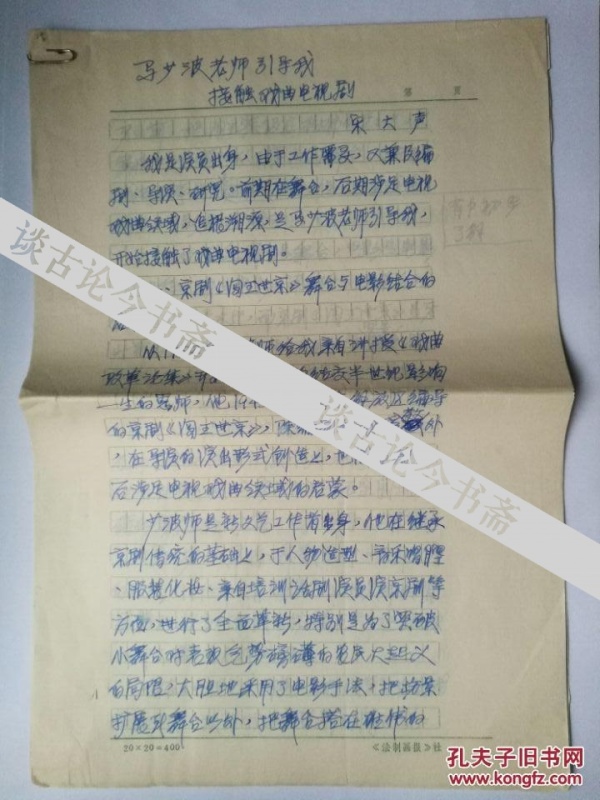 马少波老师引导我
接触戏曲电视剧
第 页
宋大声
我是演员出身，由于工作需要，又兼及编
剧、导演、研究。前期在舞台，后期涉足电视
戏曲领域，追根溯源，是马少波老师引导我，
开始接触了戏曲电视剧。
京剧《闯王进京》舞台与电影结合的
从 师给我亲自讲授《戏曲
改革论集》 交半世纪影响
一生的恩师，他 解放区编导
的京剧《闯王进京》， 外
，在导演的演出形式创造上，也
后涉足电视戏曲领域的启蒙。
少波师是新文艺工作者出身，他在继承
京剧传统的基础上，于人物造型、音乐唱腔
、服装化妆、亲自培训话剧演员演京剧等
方面，进行了全面革新，特别是为了突破
小舞台对表现 的农民大起义
的局限，大胆地采用了电影手法，把场景
扩展到舞台以外，把舞台搭在 的
20×20=400
《法制画报》社
谈古论今书斋
谈古论今书斋
谈古论今书斋
孔夫子旧书网
www.kongfz.com